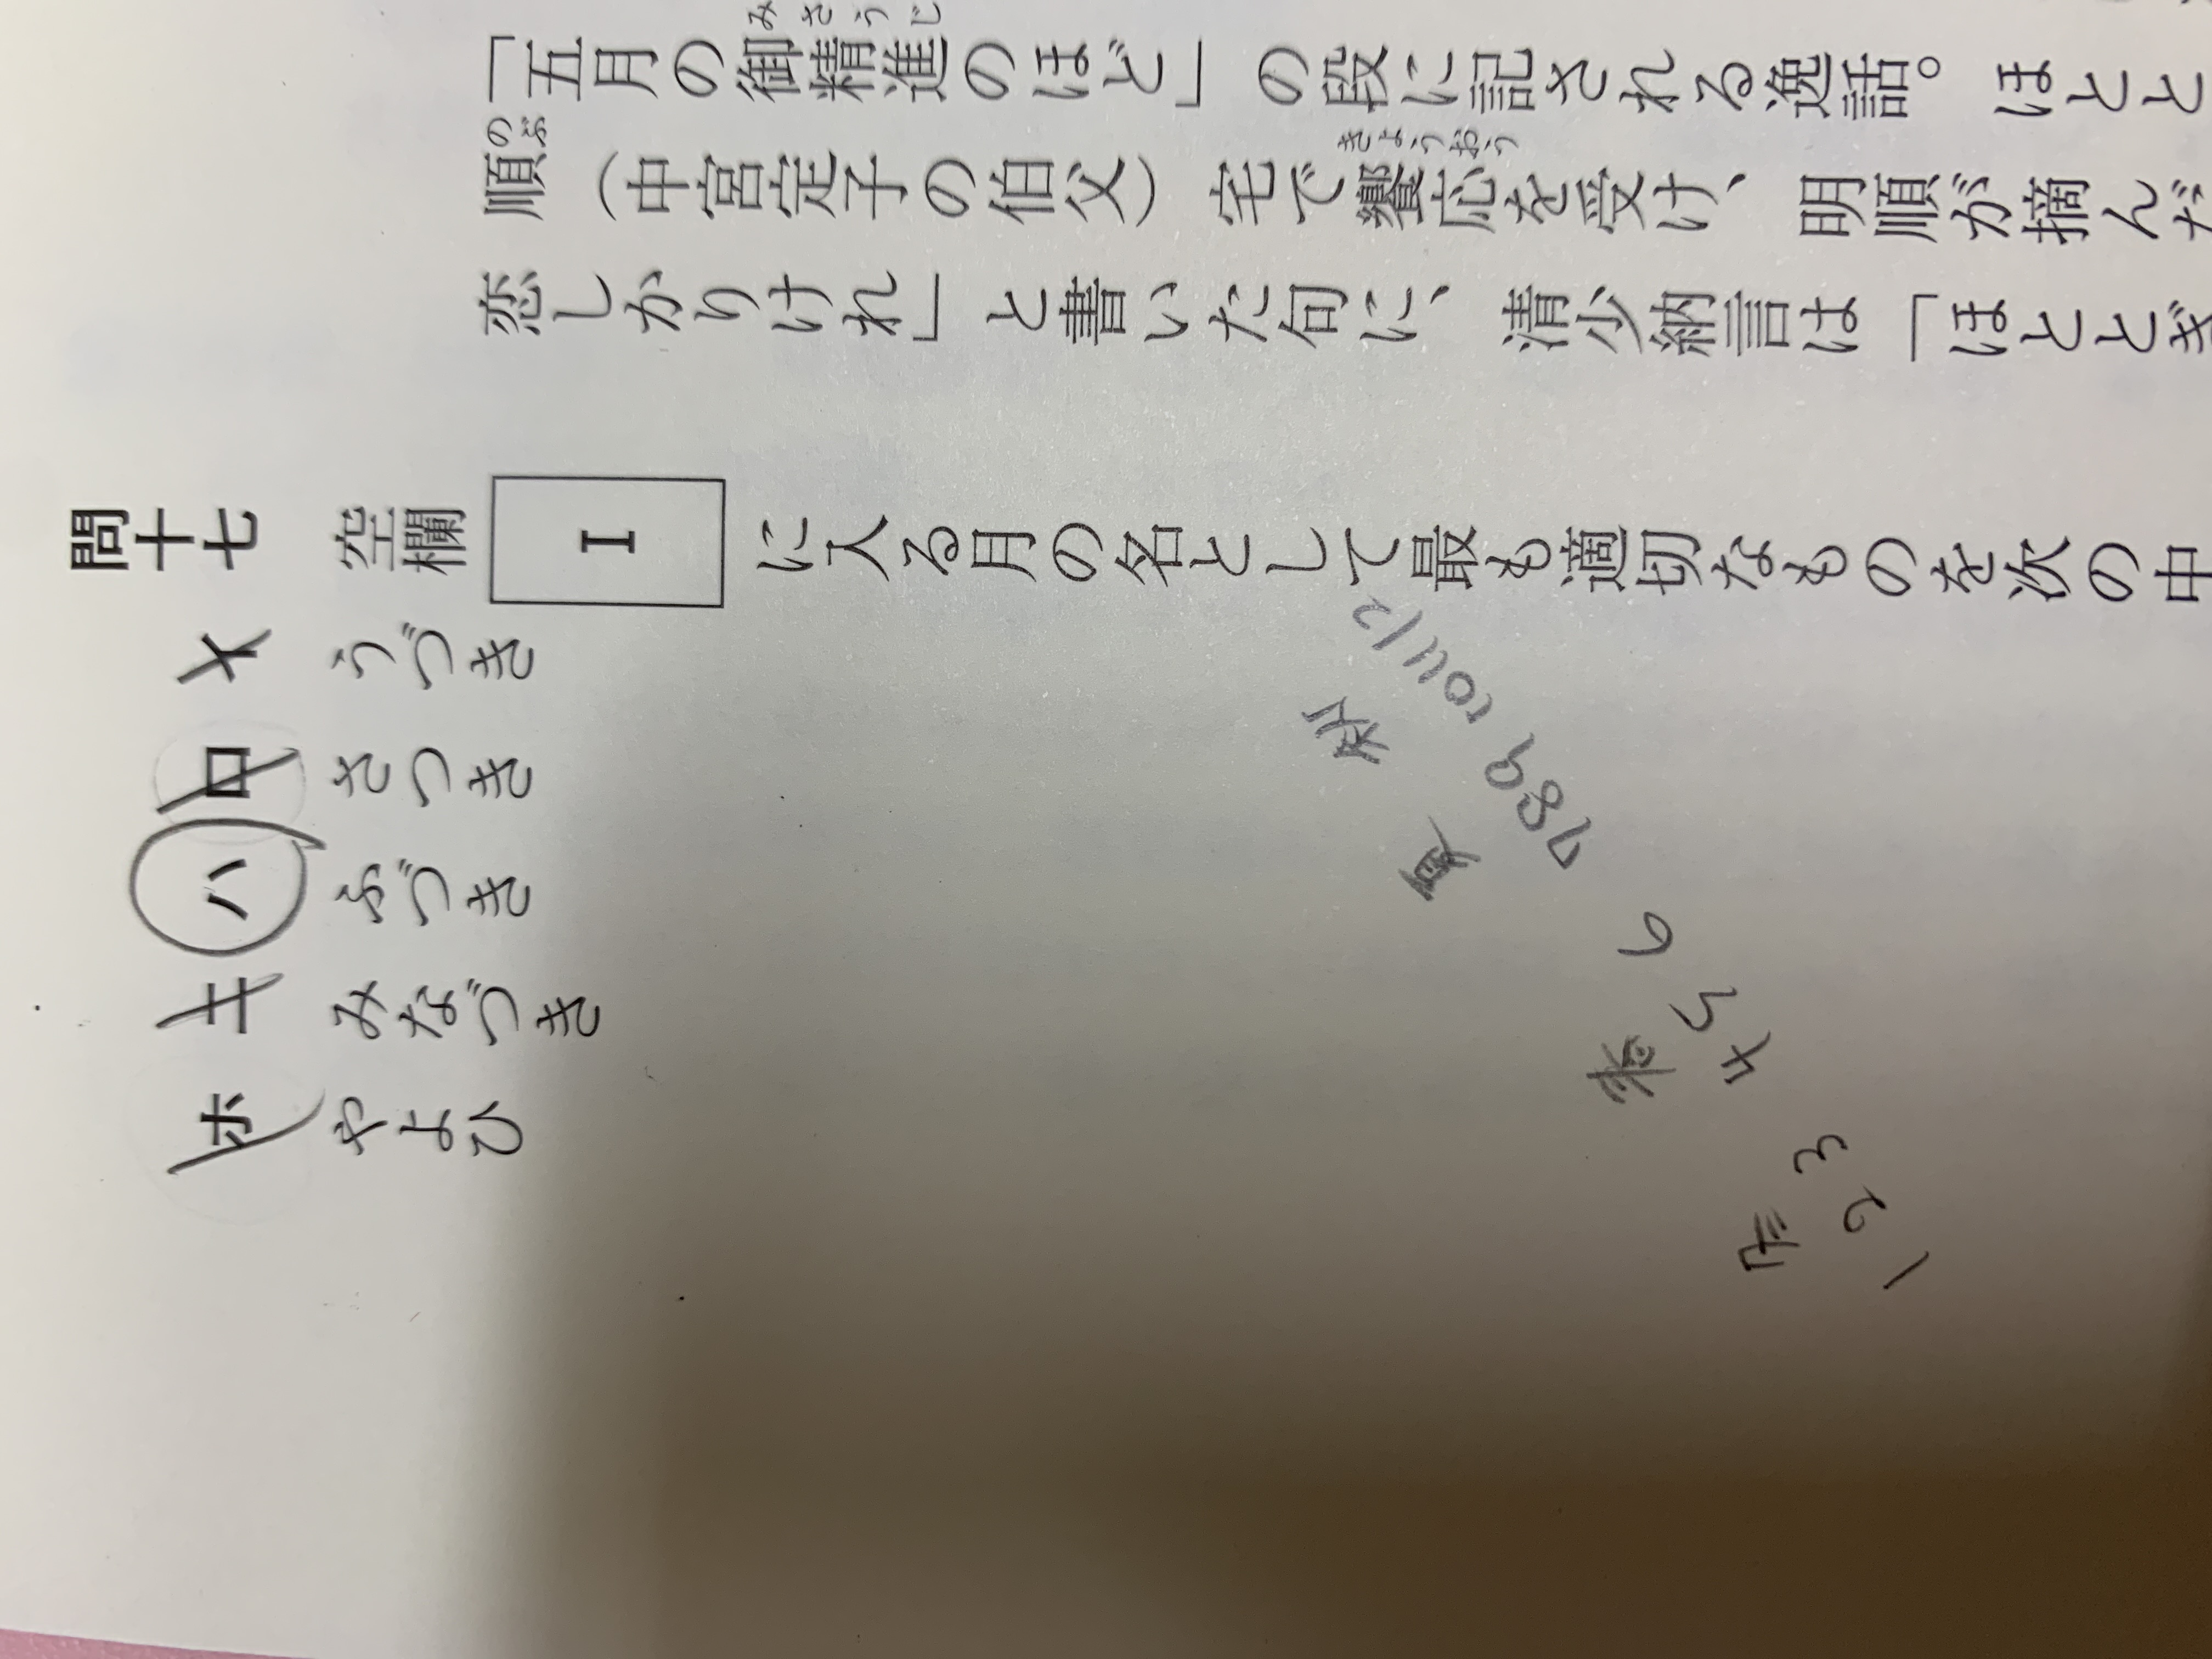 「五月の御精進のほど」の段に記される逸話。ほとと
みさうじ
順（中宮定子の伯父）宅で饗応を受け、明順が摘んだ
のぶ
きょうおう
恋しかりけれ」と書いた句に、清少納言は「ほととぎ
問十七 空欄 I に入る月の名として最も適切なものを次の中
イ うづき
ロ さつき
ハ ふづき
ニ みなづき
ホ やよひ
1 2 3 4 5 6 7 8 9 10 11 12
春 夏 秋